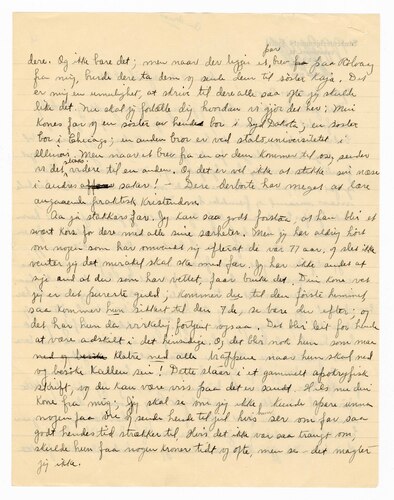 par
dere. Og ikke bare det; men naar der ligger et brev fra paa Rolvaag
fra mig, burde dere ta dem og sende dem til søster Kaja. Det
er mig en umulighet, at skrive til dere alle saa ofte jeg skulde
like det. Nu skal jeg fortælle dig hvordan vi gjør det her: Min
Kones far og en søster av hende bor i Syd Dakota; en søster
bor i Chicago; en anden bror er ved statsuniversitetet i
Illinois. Men naar et brev fra en av dem kommer til os, sender
vi det videre til en anden. Og det er vel ikke at stikke sin næse
i andres saker! – Dere derborte har meget at lære
angaaende praktisk Kristendom.
Aa ja stakkars far. Jeg kan saa godt forstaa, at han blir et
svart kors for der med alle sine særheter. Men jeg har aldrig hørt
om nogen som har omvendt sig efterat de var 77 aar, og slet ikke
venter jeg det mirakel skal ske med far. Jeg har ikke andet at
sige end at den som har vettet, faar bruke det. Din kone vet
jeg er det pureste guld; kommer du til den første himmel
saa kommer hun sikkert til den 7de, se bare du efter; og
det har hun da virkelig fortjent ogsaa. Det blir leit for hende
at være adskilt i det hinsidige. Og det blir nok hun som maa
klatre ned alle trappene naar hun skal ned
og besøke Kallen sin! Dette staar i et gammelt apokryfisk
skrift, og du kan være viss paa det er sandt. Hils nu din
kone fra mig. Jeg skal se om jeg ikke kunde spare unna
nogen faa Dre og sende hende til jul hvis ser om far saa
godt hendes tid strækker til. Hvis det ikke var saa trangt om,
skulde hun faa nogen kroner tidt og ofte, men se – det magter
jeg ikke.